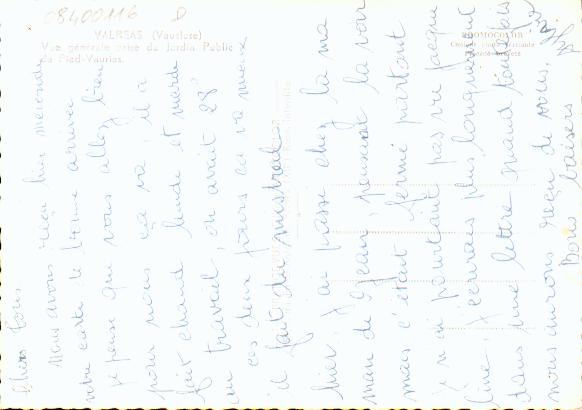 08400116 D
VALREAS (Vaucluse)
Vue générale prise du Jardin Public
du Pied-Vaurias.
Chers Tous
Nous avons reçu hier mercredi
votre carte de bonne arrivée
je pense que vous allez bien
pour nous ça va, il a
fait chaud lundi et mardi
travail, on avait 28°
ces deux jours ça va mieux
il fait du mistral
hier, j'ai passé chez la ma
man de Jean, pensant la voir
mais c'était fermé partout
je n'ai pourtant pas vu Jacque
line, j'écrirais plus longuement
dans une lettre quand
nous aurons reçu de vous.
Bons baisers